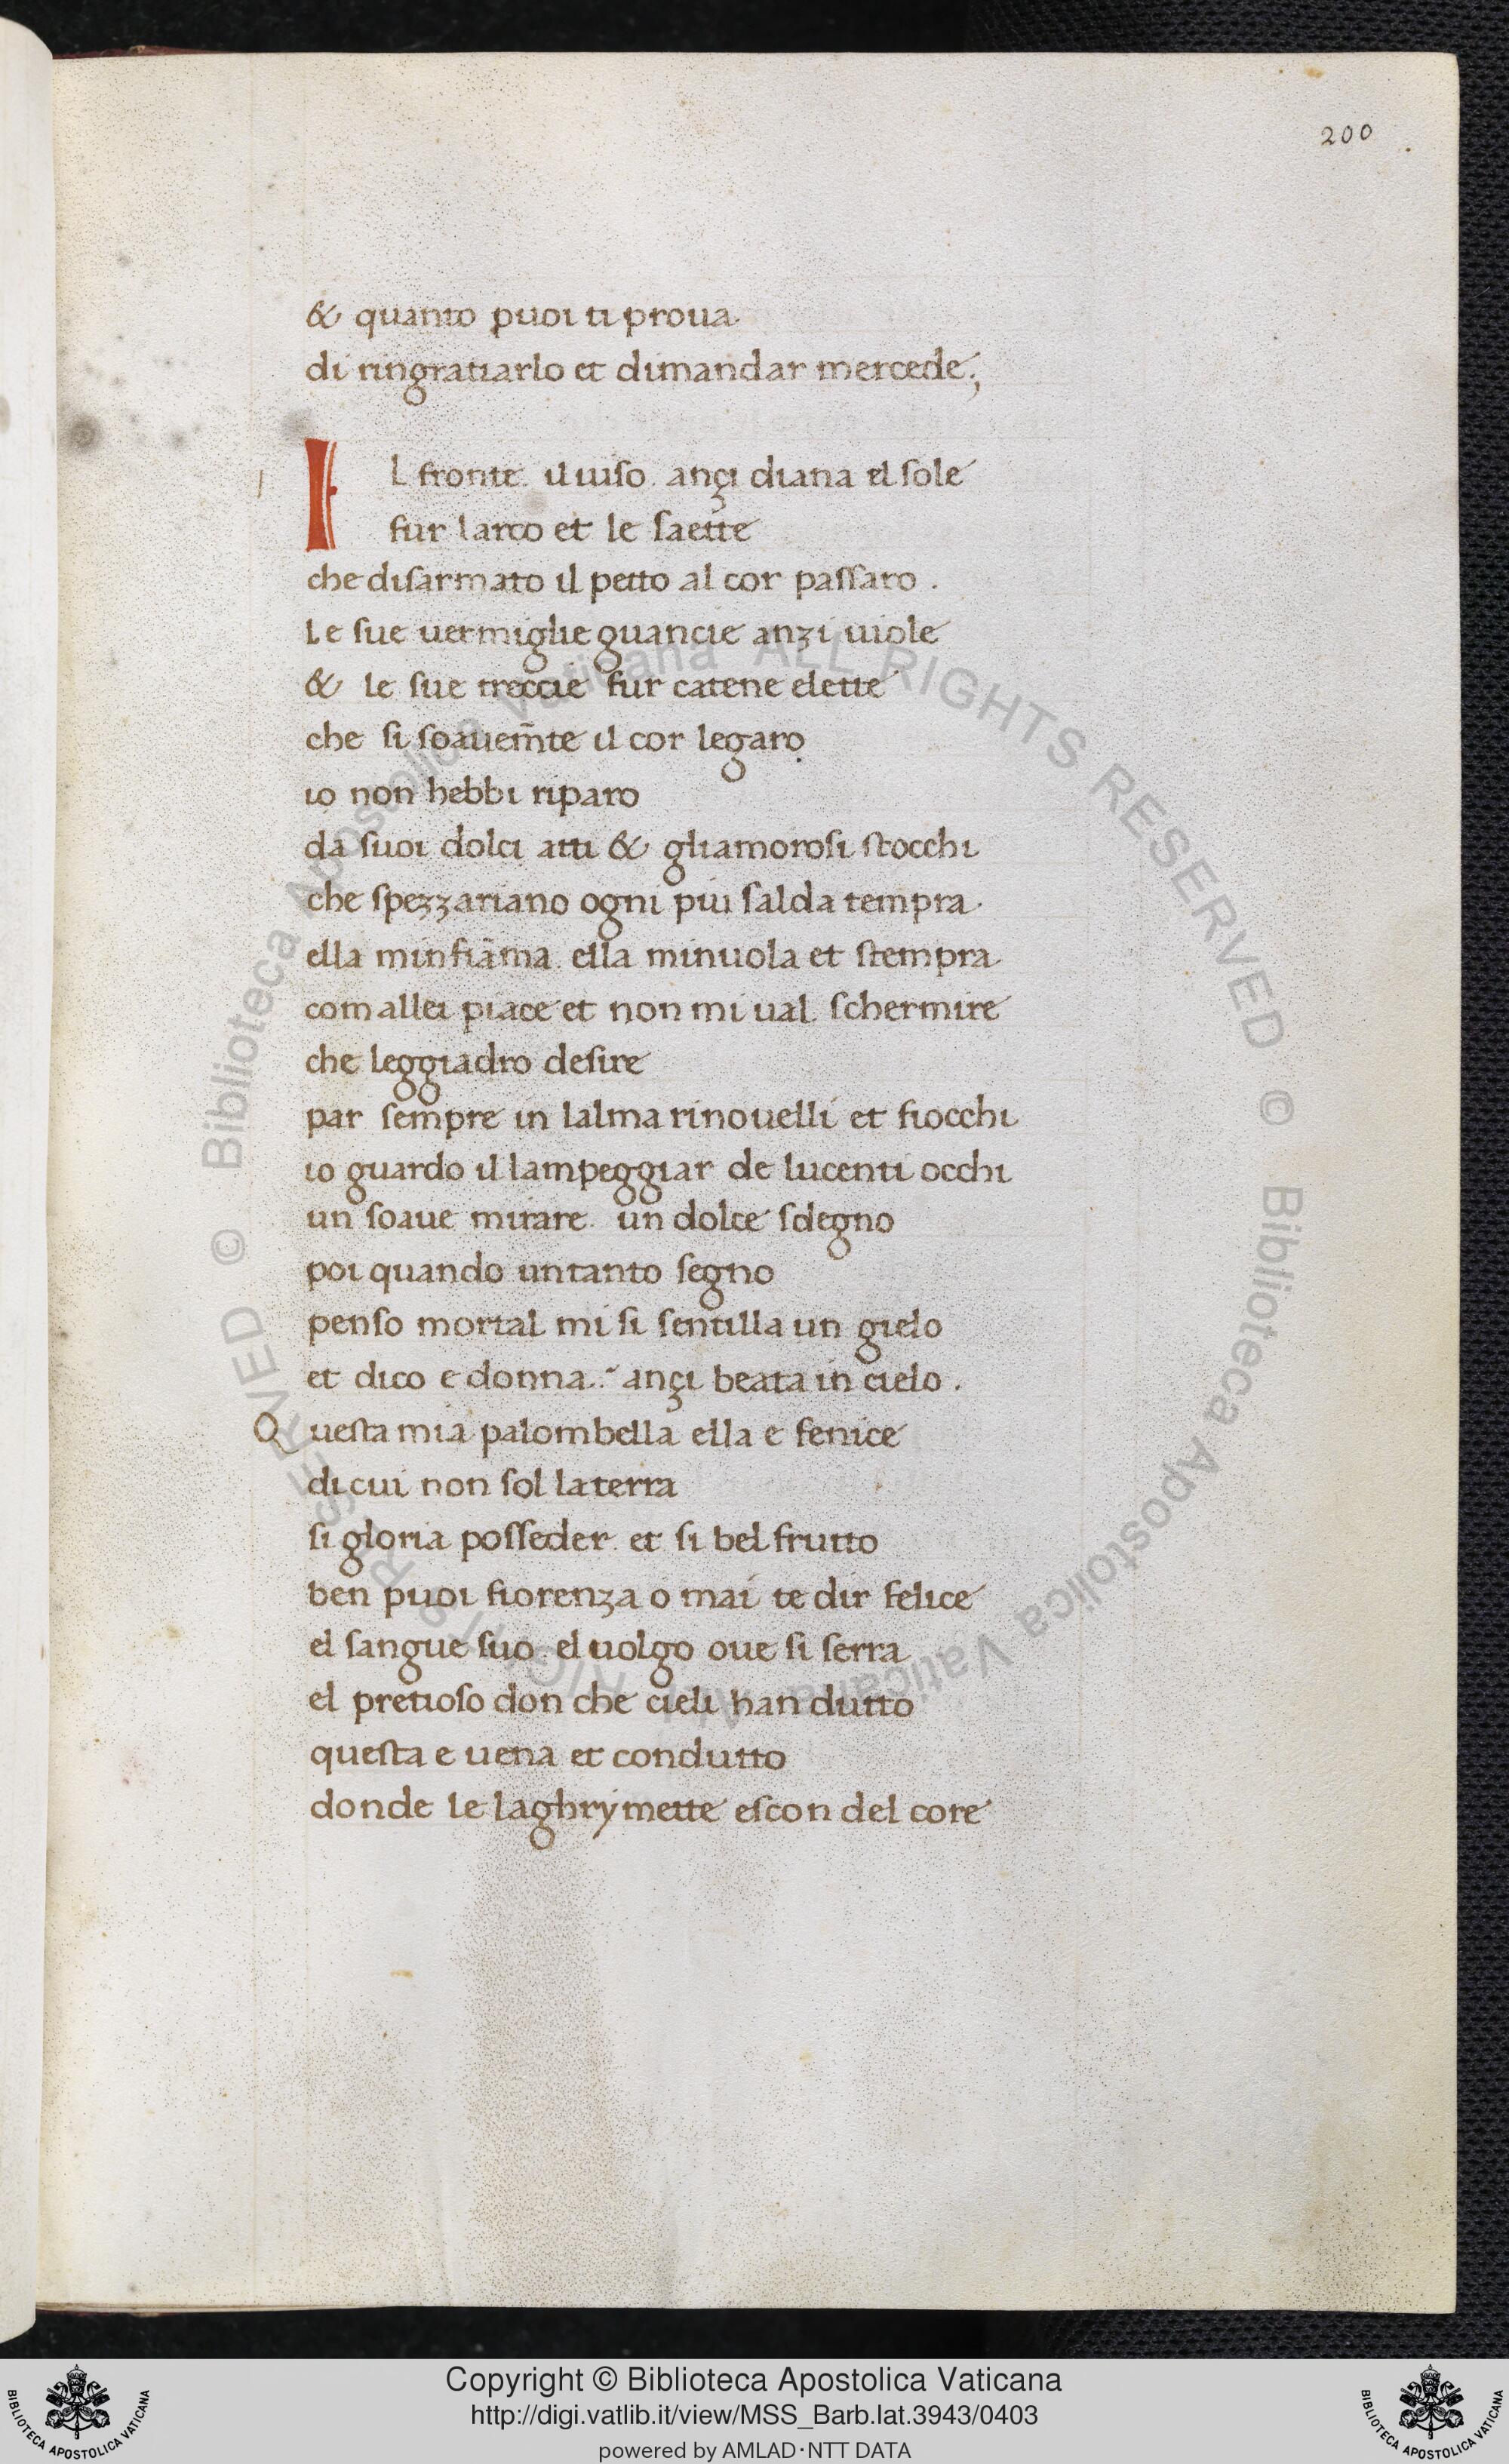 200
& quanto puoi ti proua.
di ringratiarlo et dimandar mercede;
IL fronte. il uiso. ançi diana el sole
fur larco et le saette
che disarmato il petto al cor passaro.
Le sue uermiglie guancie anzi uiole
& le sue treccie fur catene elette
che si soauem̃te il cor legaro.
io non hebbi riparo
da suoi dolci atti & gliamorosi stocchi
che spezzariano ogni piu salda tempra.
ella minfiãma. ella minuola et stempra.
com allei piace et non mi ual. schermire
che leggiadro desire
par sempre in lalma rinouelli et fiocchi
io guardo il lampeggiar de lucenti occhi
un soaue mirare. un dolce sdegno
poi quando untanto segno
penso mortal mi si sentilla un gielo
et dico e donna. ançi beata in cielo.
Questa mia palombella ella e fenice
di cui non sol la terra
si gloria posseder. et si bel frutto
ben puoi fiorenza o mai te dir felice
el sangue suo. el uolgo oue si serra.
el pretioso don che cieli han dutto
questa e uena et condutto
donde le laghrymette escon del core
Copyright © Biblioteca Apostolica Vaticana
http://digi.vatlib.it/view/MSS_Barb.lat.3943/0403
powered by AMLAD·NTT DATA
BIBLIOTECA APOSTOLICA VATICANA
BIBLIOTECA APOSTOLICA VATICANA
© Biblioteca Apostolica Vaticana ALL RIGHTS RESERVED © Biblioteca Apostolica Vaticana ALL RIGHTS RESERVED